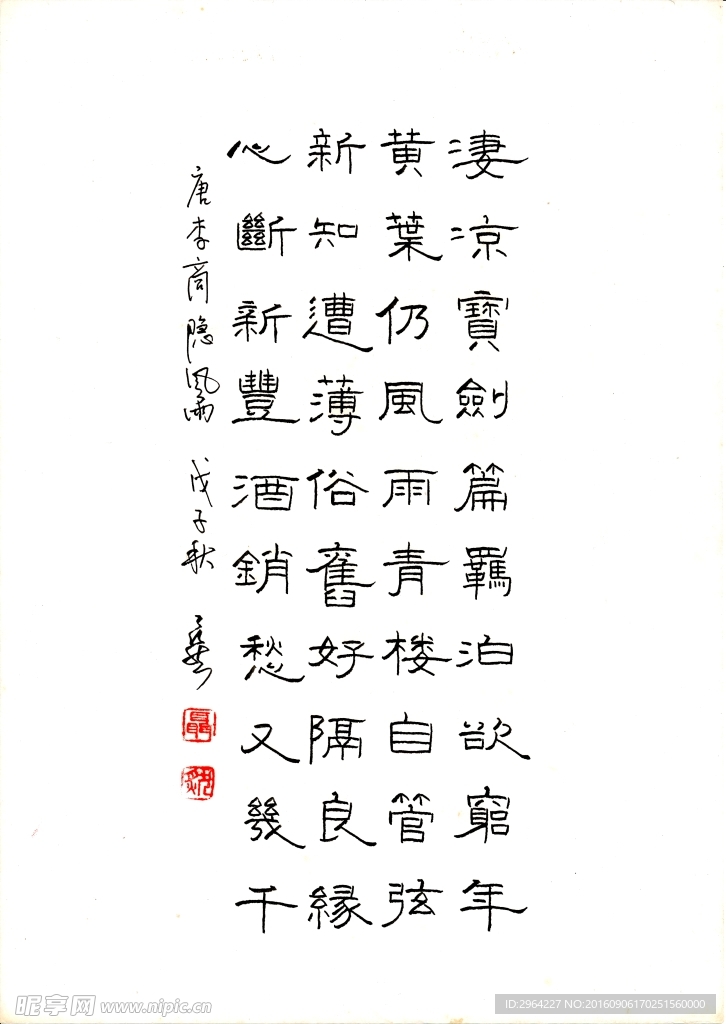 淒涼寶劍篇羈泊欲窮年
黃葉仍風雨青楼自管弦
新知遭薄俗舊好隔良緣
心斷新豐酒銷愁又幾千
唐李商隐風雨 戊子秋
昵享网 www.nipic.cn
ID:2964227 NO:20160906170251560000